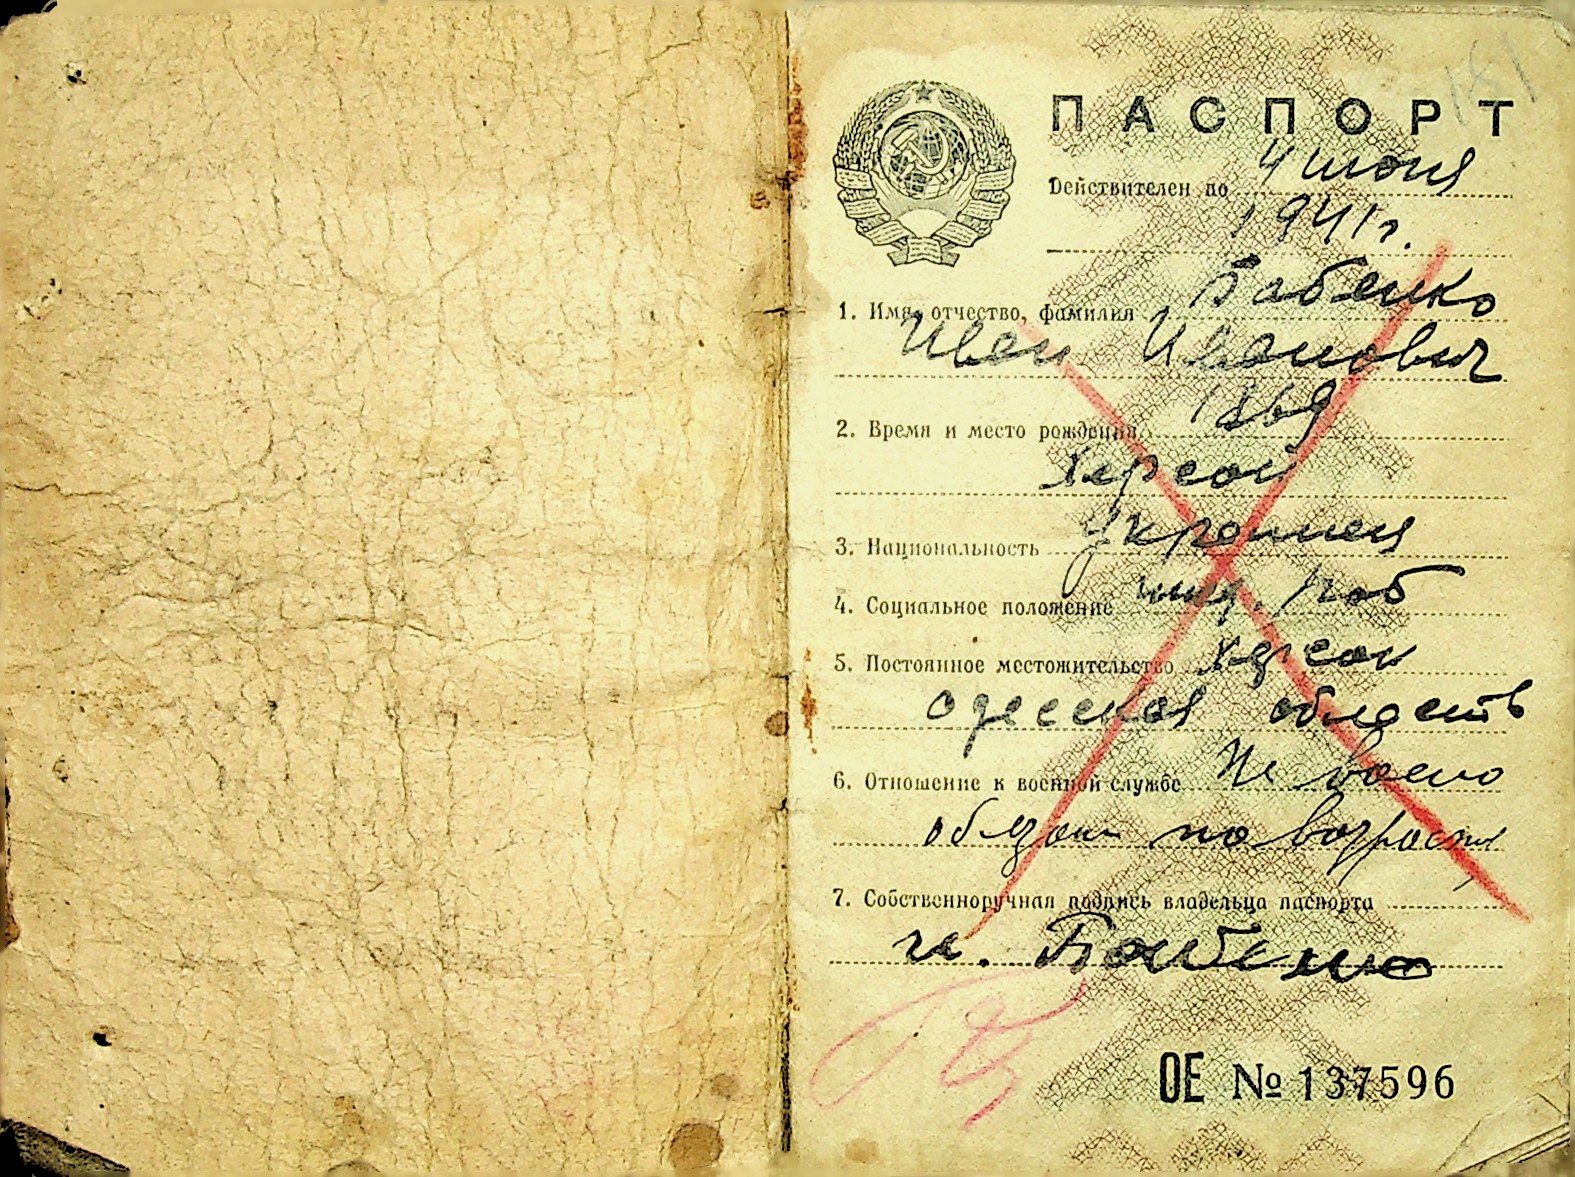 ПАСПОРТ
Действителен по 4 июня
1941 г.
1. Имя, отчество, фамилия Бабенко
Иван Иванович
2. Время и место рождения 1869
Херсон
3. Национальность украинец
4. Социальное положение
5. Постоянное местожительство Херсон
одесская область
6. Отношение к военной службе Не воено
обязан по возрасту
7. Собственноручная подпись владельца паспорта
и. Бабенко
ОЕ № 137596